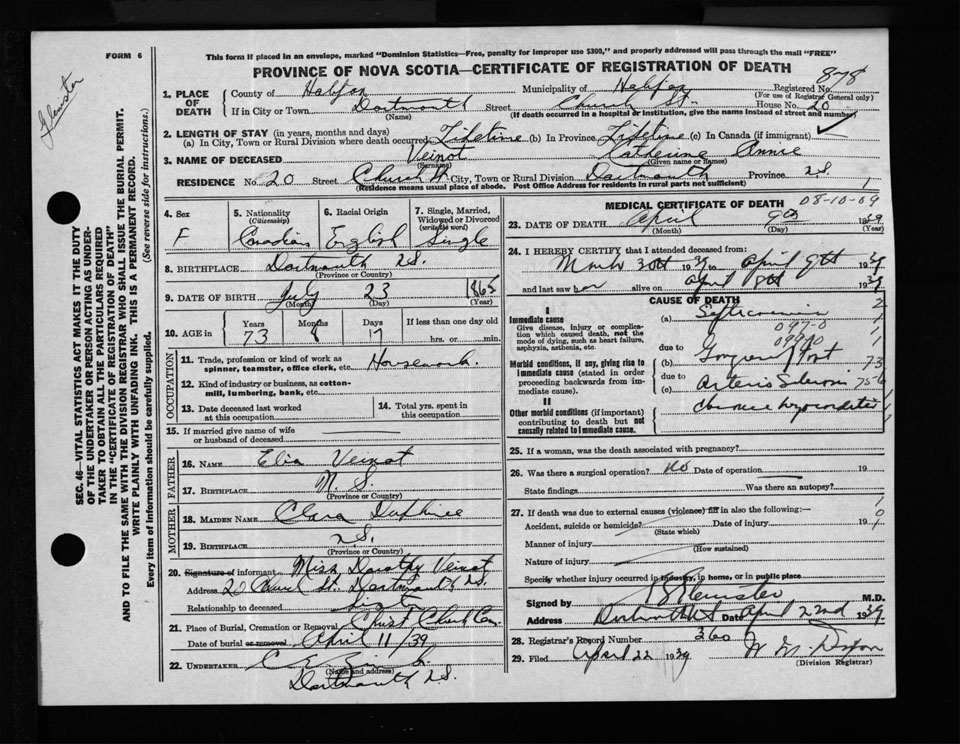 FORM 6
This form if placed in an envelope, marked "Dominion Statistics—Free, penalty for improper use $300," and properly addressed will pass through the mail "FREE"
PROVINCE OF NOVA SCOTIA—CERTIFICATE OF REGISTRATION OF DEATH
878
1. PLACE OF DEATH
County of Halifax Municipality of Halifax Registered No.
(For use of Registrar General only)
If in City or Town Dartmouth Street Church St. House No. 20
(Name) (If death occurred in a hospital or institution, give the name instead of street and number)
2. LENGTH OF STAY (in years, months and days)
(a) In City, Town or Rural Division where death occurred Lifetime (b) In Province Lifetime (c) In Canada (if immigrant)
3. NAME OF DECEASED Veinot Katherine Annie
(Surname) (Given name or names)
RESIDENCE No. 20 Street Church St. City, Town or Rural Division Dartmouth Province N.S.
(Residence means usual place of abode. Post Office Address for residents in rural parts not sufficient)
SEC. 46—VITAL STATISTICS ACT MAKES IT THE DUTY
OF THE UNDERTAKER OR PERSON ACTING AS UNDER-
TAKER TO OBTAIN ALL THE PARTICULARS REQUIRED
IN THE "CERTIFICATE OF REGISTRATION OF DEATH"
AND TO FILE THE SAME WITH THE DIVISION REGISTRAR WHO SHALL ISSUE THE BURIAL PERMIT.
WRITE PLAINLY WITH UNFADING INK. THIS IS A PERMANENT RECORD.
Every item of information should be carefully supplied. (See reverse side for instructions.)
4. Sex F
5. Nationality (Citizenship) Canadian
6. Racial Origin English
7. Single, Married, Widowed or Divorced (write the word) Single
8. BIRTHPLACE Dartmouth N.S.
(Province or Country)
9. DATE OF BIRTH July 23 1865
(Month) (Day) (Year)
10. AGE in Years Months Days If less than one day old
73 8 17 hrs. or min.
OCCUPATION
11. Trade, profession or kind of work as spinner, teamster, office clerk, etc. Housework.
12. Kind of industry or business, as cotton-mill, lumbering, bank, etc.
13. Date deceased last worked at this occupation
14. Total yrs. spent in this occupation
15. If married give name of wife or husband of deceased
FATHER
16. NAME Veinot
17. BIRTHPLACE N.S.
(Province or Country)
MOTHER
18. MAIDEN NAME Clara
19. BIRTHPLACE N.S.
(Province or Country)
20. Signature of informant Miss Dorothy Veinot
Address 20 Church St. Dartmouth N.S.
Relationship to deceased
21. Place of Burial, Cremation or Removal Christ Church Cem.
Date of burial or removal April 11/39
22. UNDERTAKER
(Name and address)
Dartmouth N.S.
MEDICAL CERTIFICATE OF DEATH
08-10-09
23. DATE OF DEATH April 9th 1939
(Month) (Day) (Year)
24. I HEREBY CERTIFY that I attended deceased from:
March 30th 1939 to April 9th 1939
and last saw her alive on April 8th 1939
CAUSE OF DEATH
I
Immediate cause
Give disease, injury or complication which caused death, not the mode of dying, such as heart failure, asphyxia, asthenia, etc.
(a) Septicaemia
due to
Morbid conditions, if any, giving rise to immediate cause (stated in order proceeding backwards from immediate cause).
(b) Gangrene Foot
due to
(c) Arterio Sclerosis
II
Other morbid conditions (if important) contributing to death but not causally related to immediate cause.
25. If a woman, was the death associated with pregnancy?
26. Was there a surgical operation? No Date of operation 19
State findings Was there an autopsy?
27. If death was due to external causes (violence) fill in also the following:—
Accident, suicide or homicide? Date of injury 19
(State which)
Manner of injury
(How sustained)
Nature of injury
Specify whether injury occurred in industry, in home, or in public place
Signed by M.D.
Address Date April 22nd 1939
28. Registrar's Record Number 360
29. Filed April 22 1939
(Division Registrar)